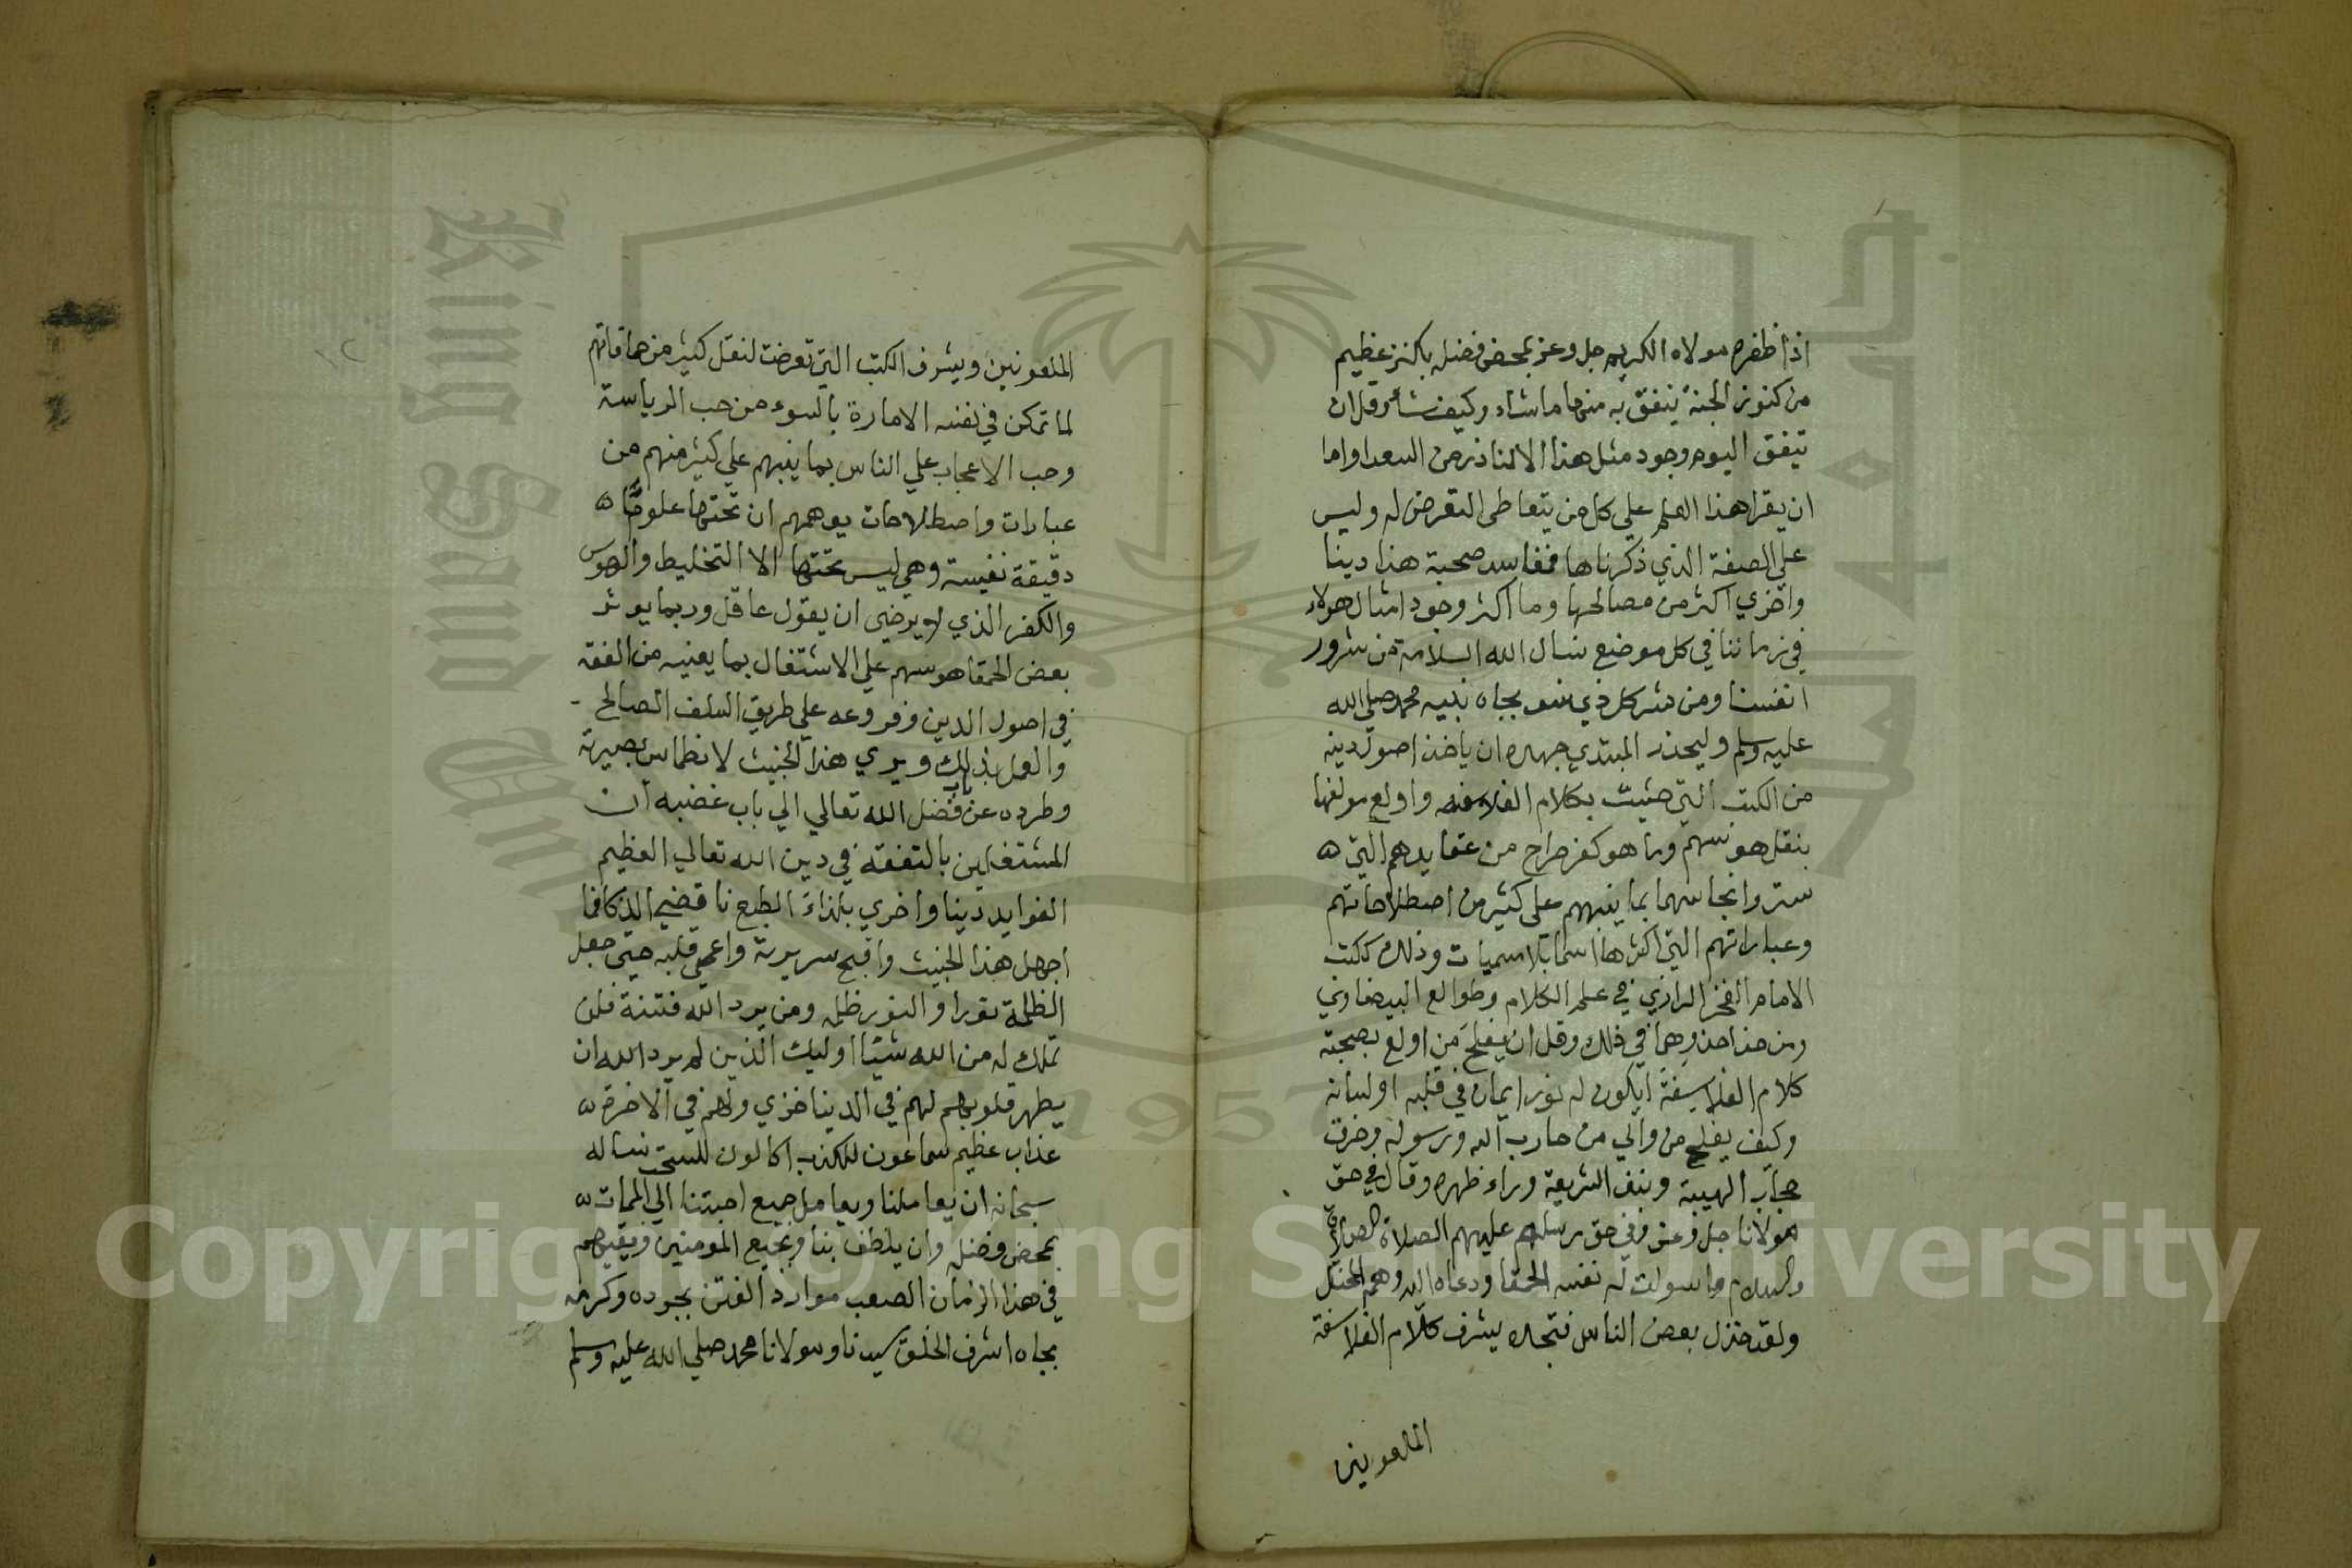 اذا ظفره مولاه الكريم جل وعز بمحض فضله بكنز عظيم
من كنوز الجنة ينفق به منها ما شاء وكيف شاء وقل ان
يتفق اليوم وجود مثل هذا الا لنادر من السعدا واما
ان يقرا هذا العلم علي كل من يتعاطى التعرض له وليس
على الصفة الذي ذكرناها فمفاسد صحبة هذا دينا
واخري اكثر من مصالحها وما اكثر وجود امثال هولاء
في زماننا في كل موضع نسال الله السلامة من شرور
انفسنا ومن شر كل ذي شر بجاه نبيه محمد صلى الله
عليه وسلم وليحذر المبتدي جهده ان ياخذ اصول دينه
من الكتب التي حشيت بكلام الفلاسفه واولع مولفها
بنقل هوسهم وما هو كفر صراح من عقايدهم التي
ستروا نجاسها بما ينبهم على كثير من اصطلاحاتهم
وعباراتهم التي اكثرها اسما بلا مسميات وذلك ككتب
الامام الفخر الرازي في علم الكلام وطوالع البيضاوي
ومن حذا حذوهما في ذلك وقل ان يفلح من اولع بصحبة
كلام الفلاسفة ايكون له نور ايمان في قلبه او لسانه
وكيف يفلح من والي من حارب الله ورسوله وخرق
حجاب الهيبة ونبذ الشريعة وراء ظهره وقال في حق
مولانا جل وعز وفي حق رسلهم عليهم الصلاة
والسلام ما سولت له نفسه الحمقا ودعاه اليه وهمه المختل
ولقد خذل بعض الناس فتجده يشرف كلام الفلاسفة
الملعونين
١٢
الملعونين ويشرف الكتب التي تعرضت لنقل كثير من حماقاتهم
لما تمكن في نفسه الامارة بالسوء من حب الرياسة
وحب الاعجاب علي الناس بما ينبهم علي كثير منهم من
عبارات واصطلاحات يوهمهم ان تحتها علوما
دقيقة نفيسة وهي ليس تحتها الا التخليط والهوس
والكفر الذي لا يرضى ان يقول عاقل وربما يوثر
بعض الحمقا هوسهم علي الاشتغال بما يعنيه من الفقه
في اصول الدين وفروعه علي طريق السلف الصالح
والعمل بذلك ويري هذا الخبيث لانطماس بصيرته
وطرده عن باب فضل الله تعالي الي باب غضبه ان
المشتغلين بالتفقه في دين الله تعالي العظيم
الفوايد دينا واخري بلداء الطبع ناقضي الذكا فما
اجهل هذا الخبيث واقبح سريرته واعمى قلبه حتى جعل
الظلمة نورا والنور ظلمه ومن يرد الله فتنة فلن
تملك له من الله شيئا اوليك الذين لم يرد الله ان
يطهر قلوبهم لهم في الدينا خزي ولهم في الاخرة
عذاب عظيم سماعون للكذب اكالون للسحت نساله
سبحانه ان يعاملنا ويعامل جميع احبتنا الي الممات
بمحض فضله وان يلطف بنا وبجميع المومنين ويقيهم
في هذا الزمان الصعب موارد الفتن بجوده وكرمه
بجاه اشرف الخلق سيدنا ومولانا محمد صلي الله عليه وسلم
King Saud University
1957
Copyright © King Saud University